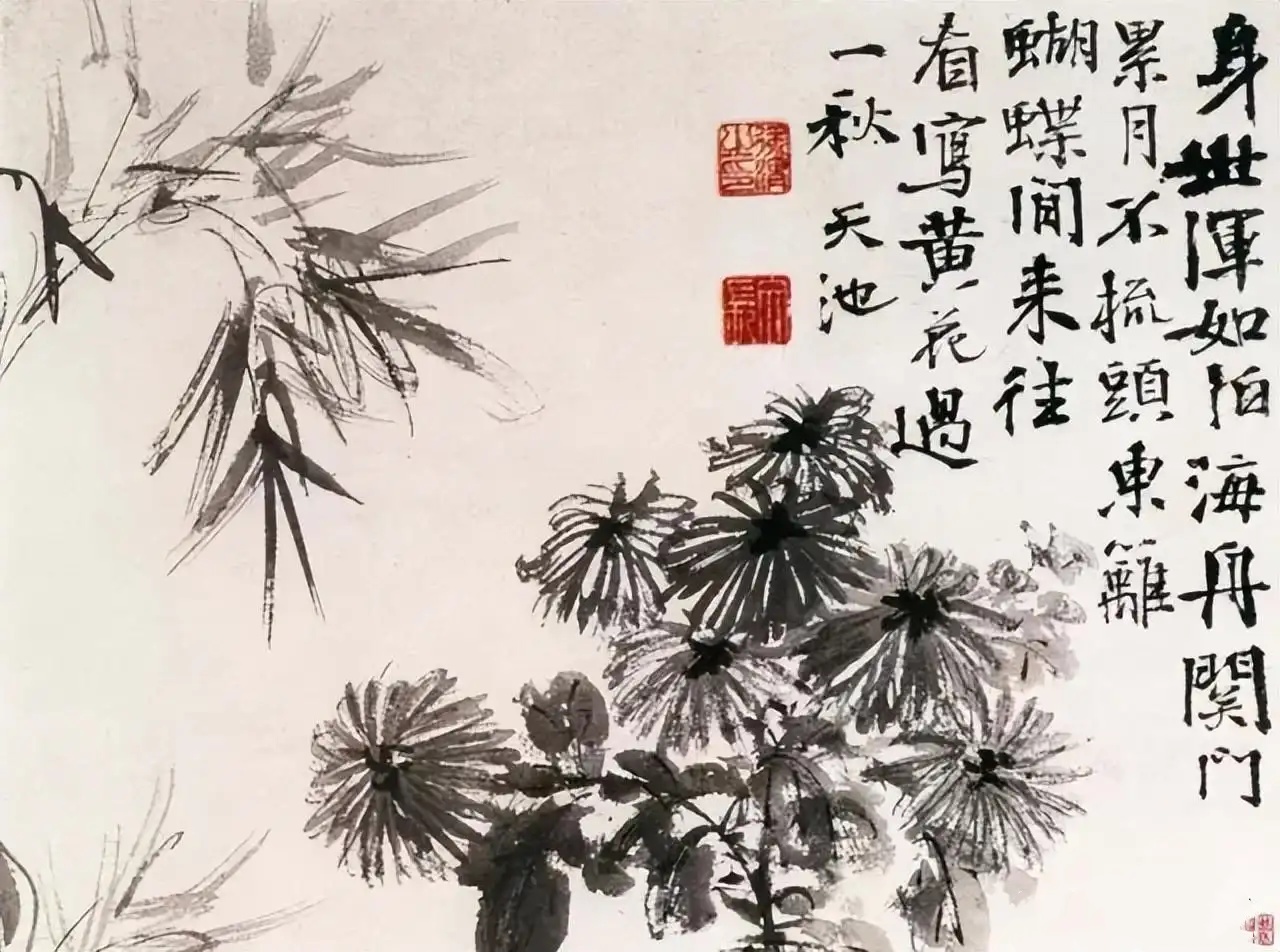 身世渾如泊海舟關門
累月不梳頭東籬
蝴蝶閒来往
看寫黃花過
一秋 天池
徐渭之印